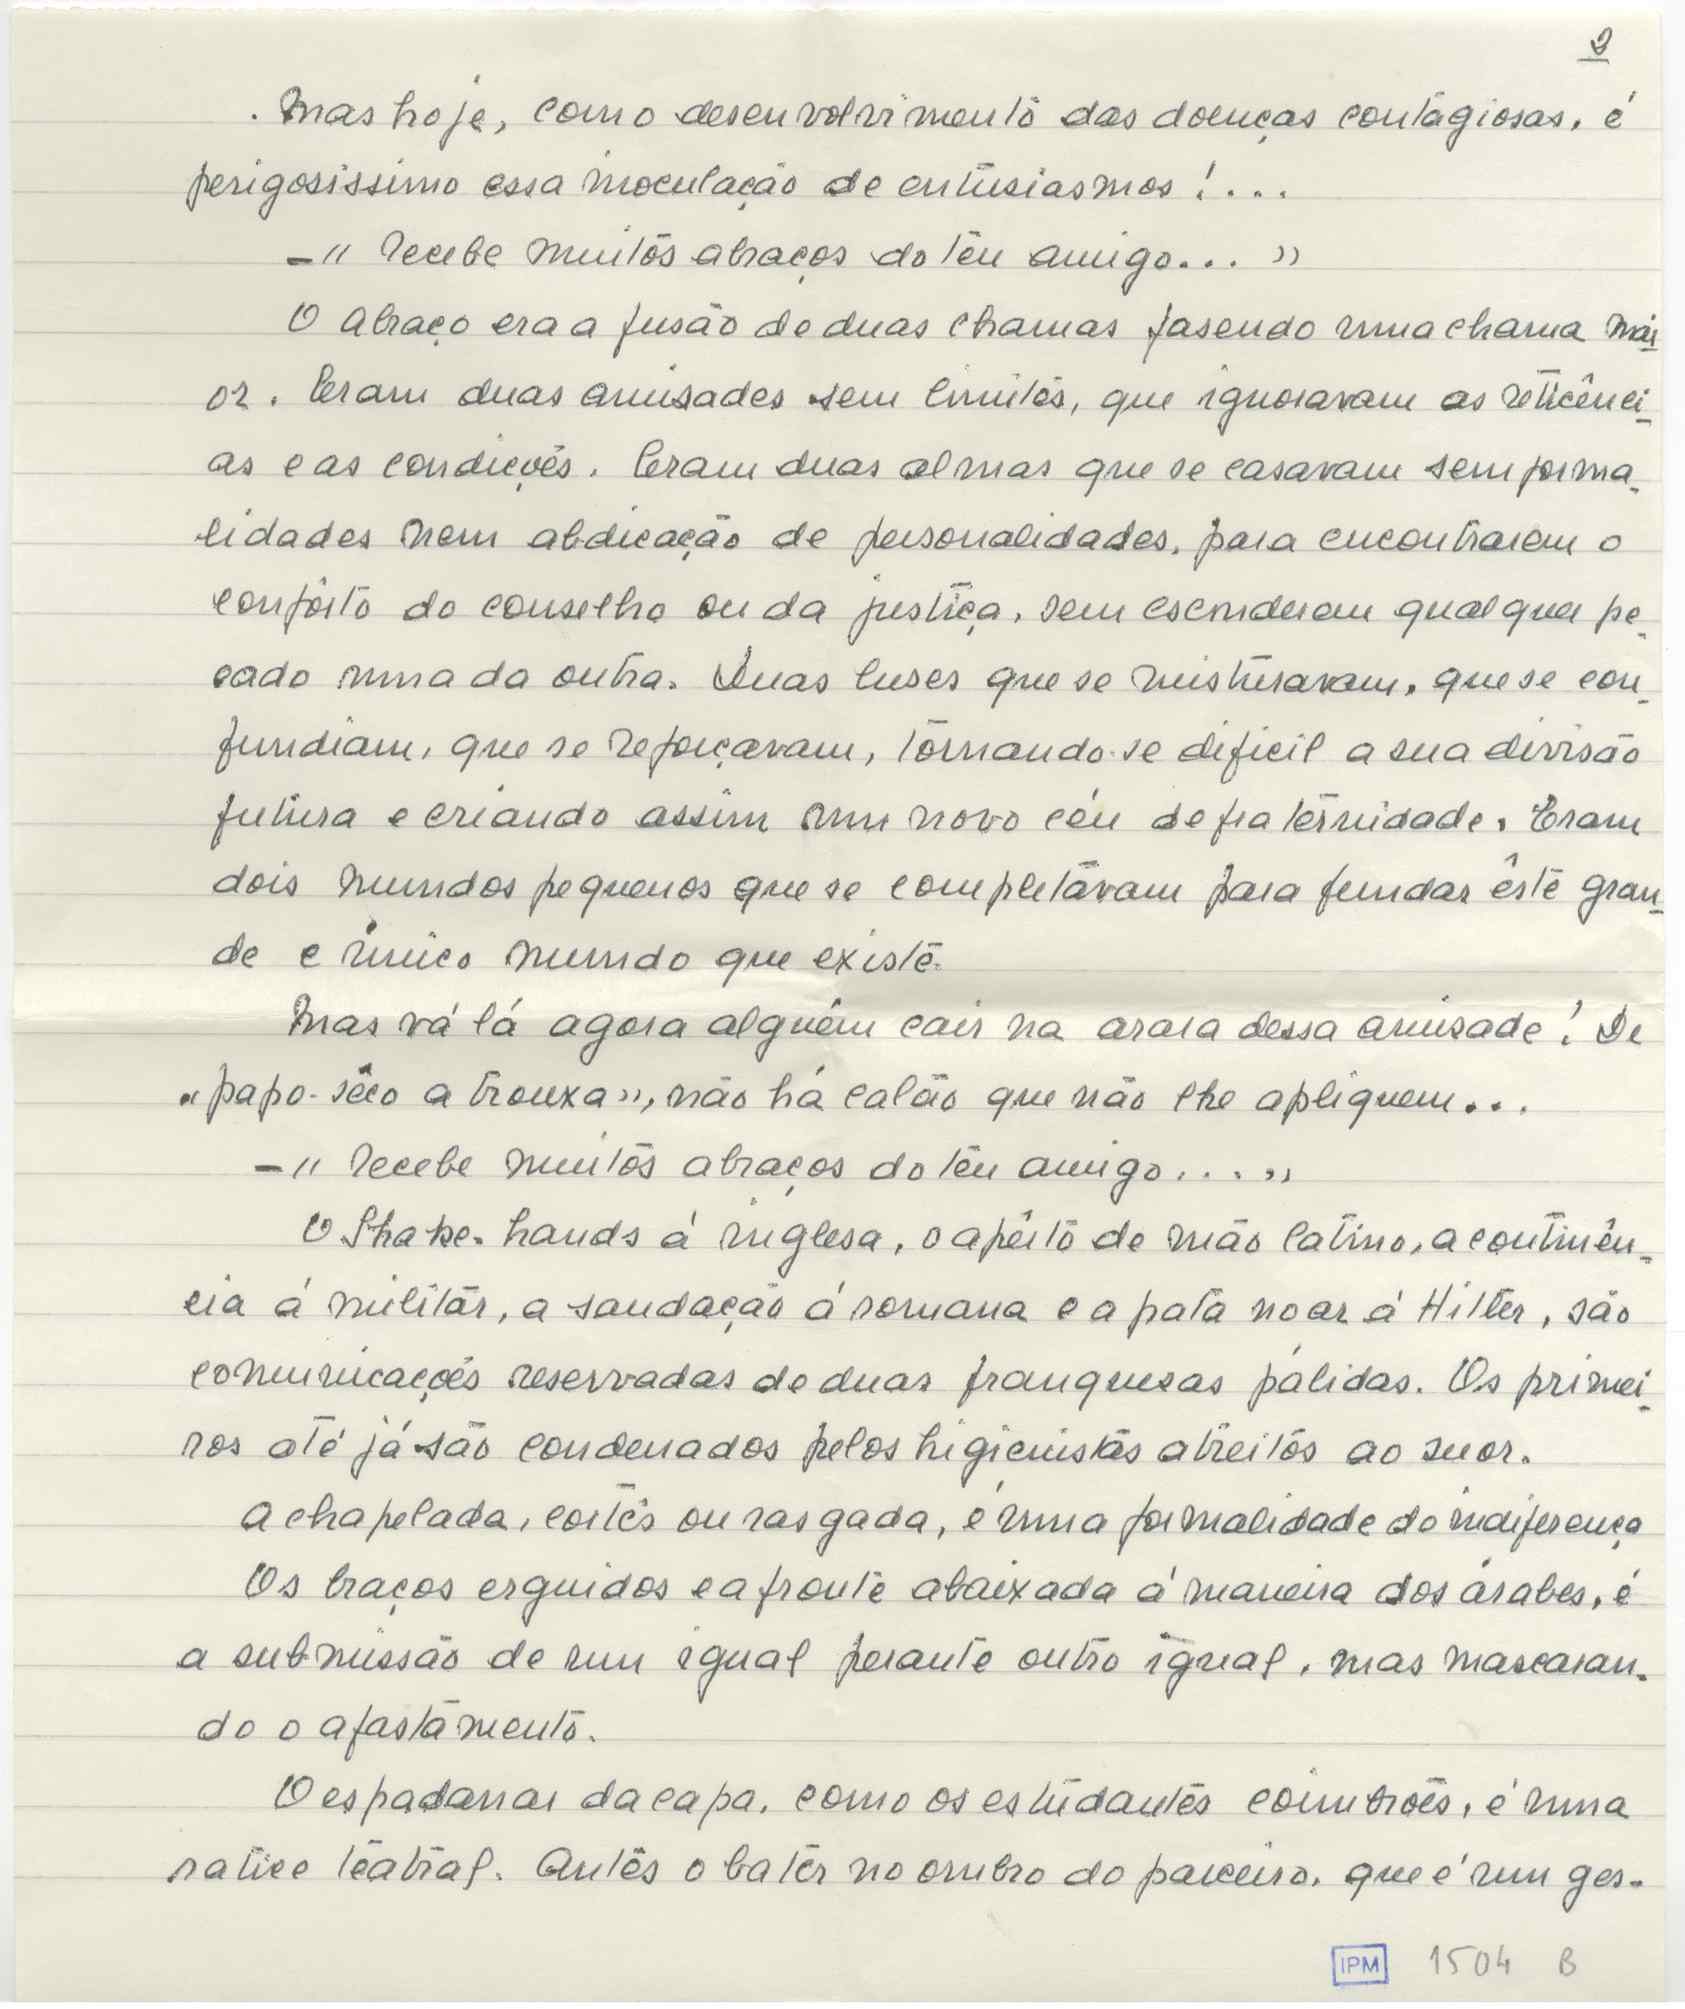 2
. Mas hoje, com o desenvolvimento das doenças contágiosas, é
perigosissimo essa inoculação de entusiasmos!...
—"recebe muitos abraços do teu amigo..."
O abraço era a fusão de duas chamas fasendo uma chama mai-
or. Eram duas amisades sem limites, que ignoravam as reticênci-
as e as condições. Eram duas almas que se casavam sem forma-
lidades nem abdicação de personalidades, para encontrarem o
confôrto do conselho ou da justiça, sem esconderem qualquer pe-
cado uma da outra. Duas luses que se misturavam, que se con-
fundiam, que se reforçavam, tornando-se dificil a sua divisão
futura e criando assim um novo céu de fraternidade. Eram
dois mundos pequenos que se completavam para fundar êste gran-
de e único mundo que existe.
Mas vá lá agora alguêm cair na arara dessa amisade! De
"papo-sêco a trouxa", não há calão que não lhe apliquem...
—"recebe muitos abraços do teu amigo...."
O Shake-hands á inglesa, o apêrto de mão latino, a continên-
cia á militar, a saudação á romana e a pata no ar á Hitler, são
comunicações reservadas de duas franquesas pálidas. Os primei-
ros até já são condenados pelos higienistas atreitos ao suor.
A chapelada, cortês ou rasgada, é uma formalidade do indiferença
Os braços erguidos e a fronte abaixada á maneira dos árabes, é
a submissão de um igual perante outro igual, mas mascaran-
do o afastamento.
O espadanar da capa, como os estudantes coimbrões, é uma
ratice teatral. Antes o bater no ombro do parceiro, que é um ges-
IPM 1504 B